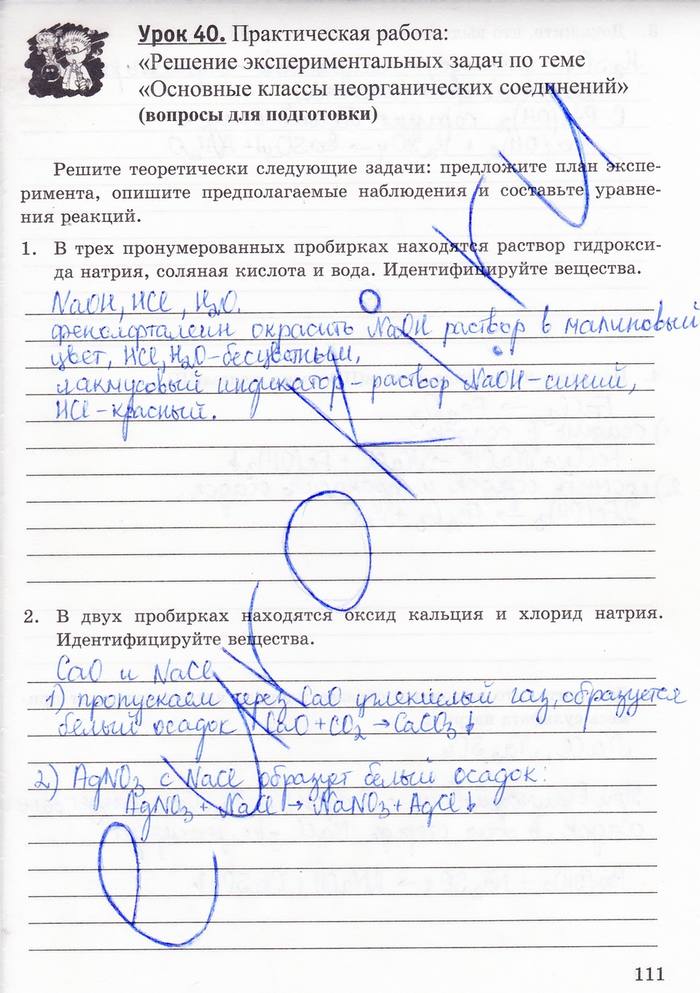 Урок 40. Практическая работа:
«Решение экспериментальных задач по теме
«Основные классы неорганических соединений»
(вопросы для подготовки)
Решите теоретически следующие задачи: предложите план экспе-
римента, опишите предполагаемые наблюдения и составьте уравне-
ния реакций.
1. В трех пронумерованных пробирках находятся раствор гидрокси-
да натрия, соляная кислота и вода. Идентифицируйте вещества.
NaOH, HCl, H₂O.
фенолфталеин окрасить NaOH раствор в малиновый
цвет, HCl, H₂O-бесцветный,
лакмусовый индикатор - раствор NaOH-синий,
HCl-красный.
2. В двух пробирках находятся оксид кальция и хлорид натрия.
Идентифицируйте вещества.
CaO и NaCl
1) пропускаем через CaO углекислый газ, образуется
белый осадок CaO + CO₂ → CaCO₃↓
2) AgNO₃ с NaCl образует белый осадок:
AgNO₃ + NaCl → NaNO₃ + AgCl↓
111